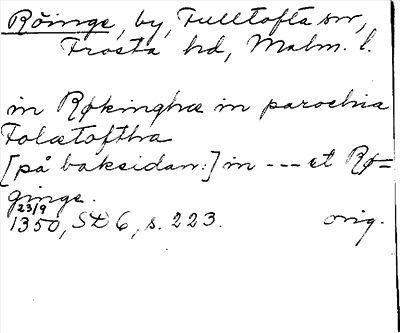 Röinge, by, Fulltofta sn,
Frosta hd, Malm. l.
in Røkinghæ in parochia
Folætoftha
[på baksidan:] in --- et Rø=
ginge.
23/9
1350, SD 6, s. 223. orig.